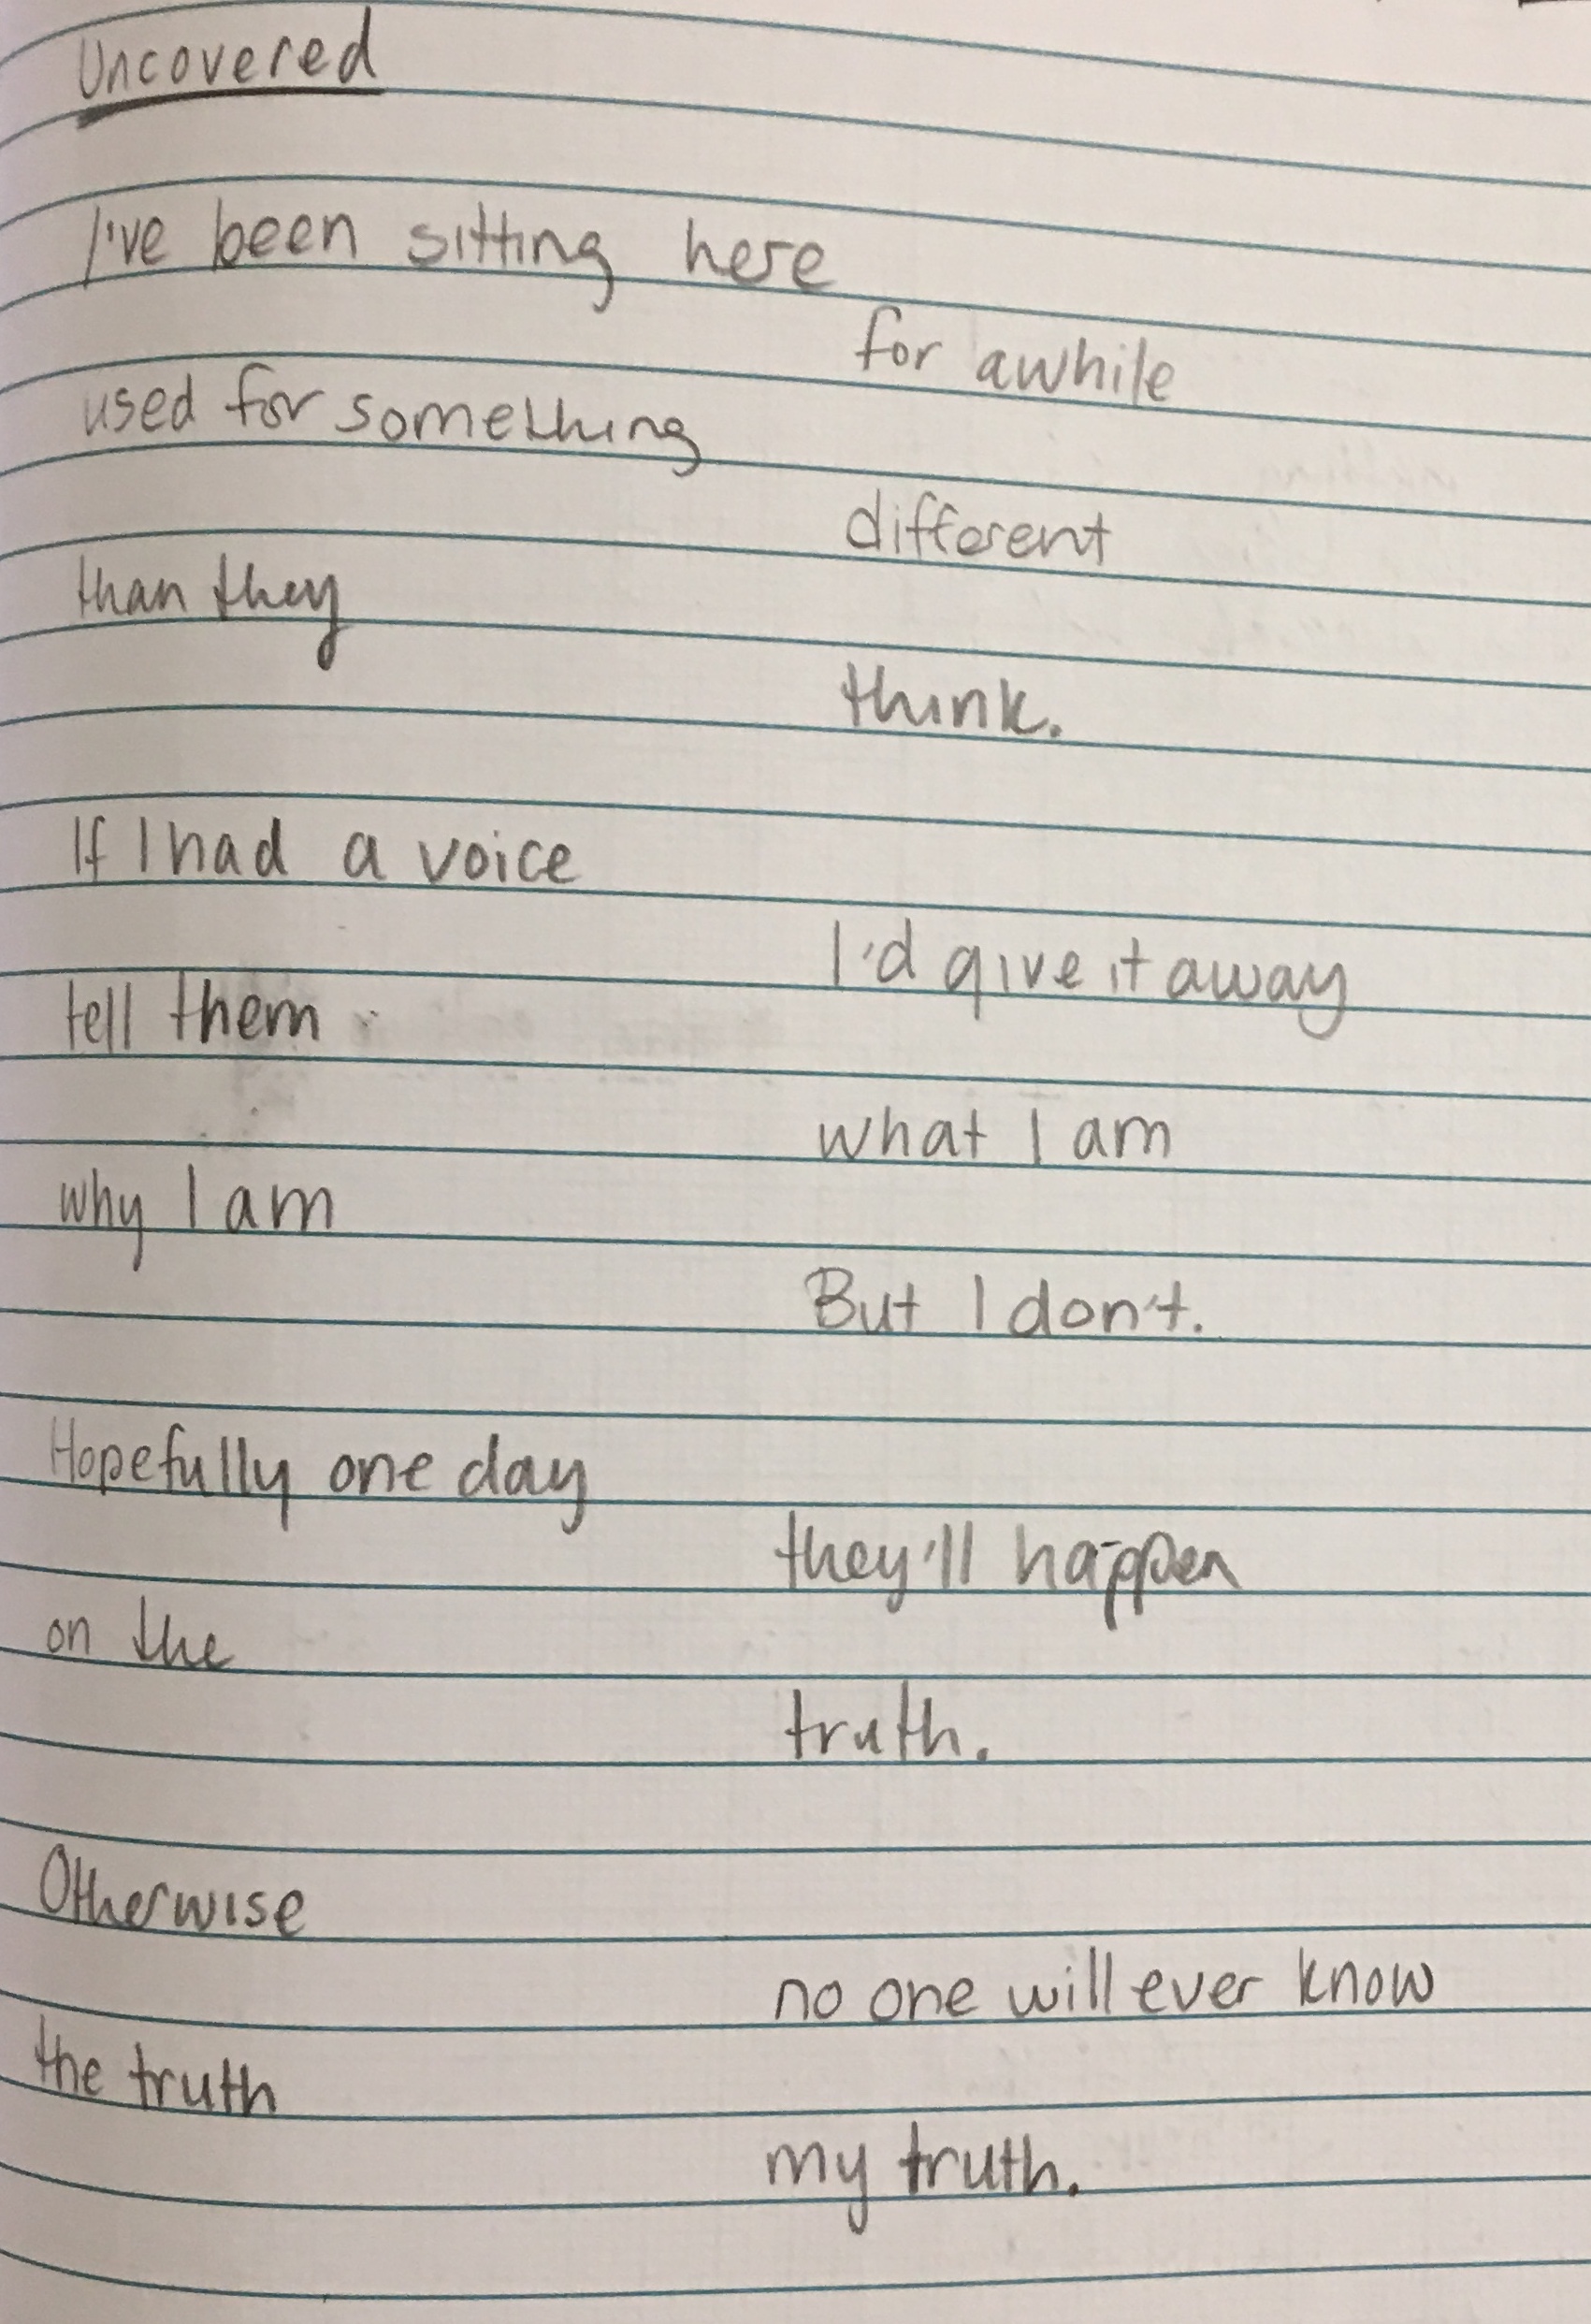 Uncovered
I've been sitting here
for awhile
used for something
different
than they
think.
If I had a voice
I'd give it away
tell them
what I am
why I am
But I don't.
Hopefully one day
they'll happen
on the
truth.
Otherwise
no one will ever know
the truth
my truth.